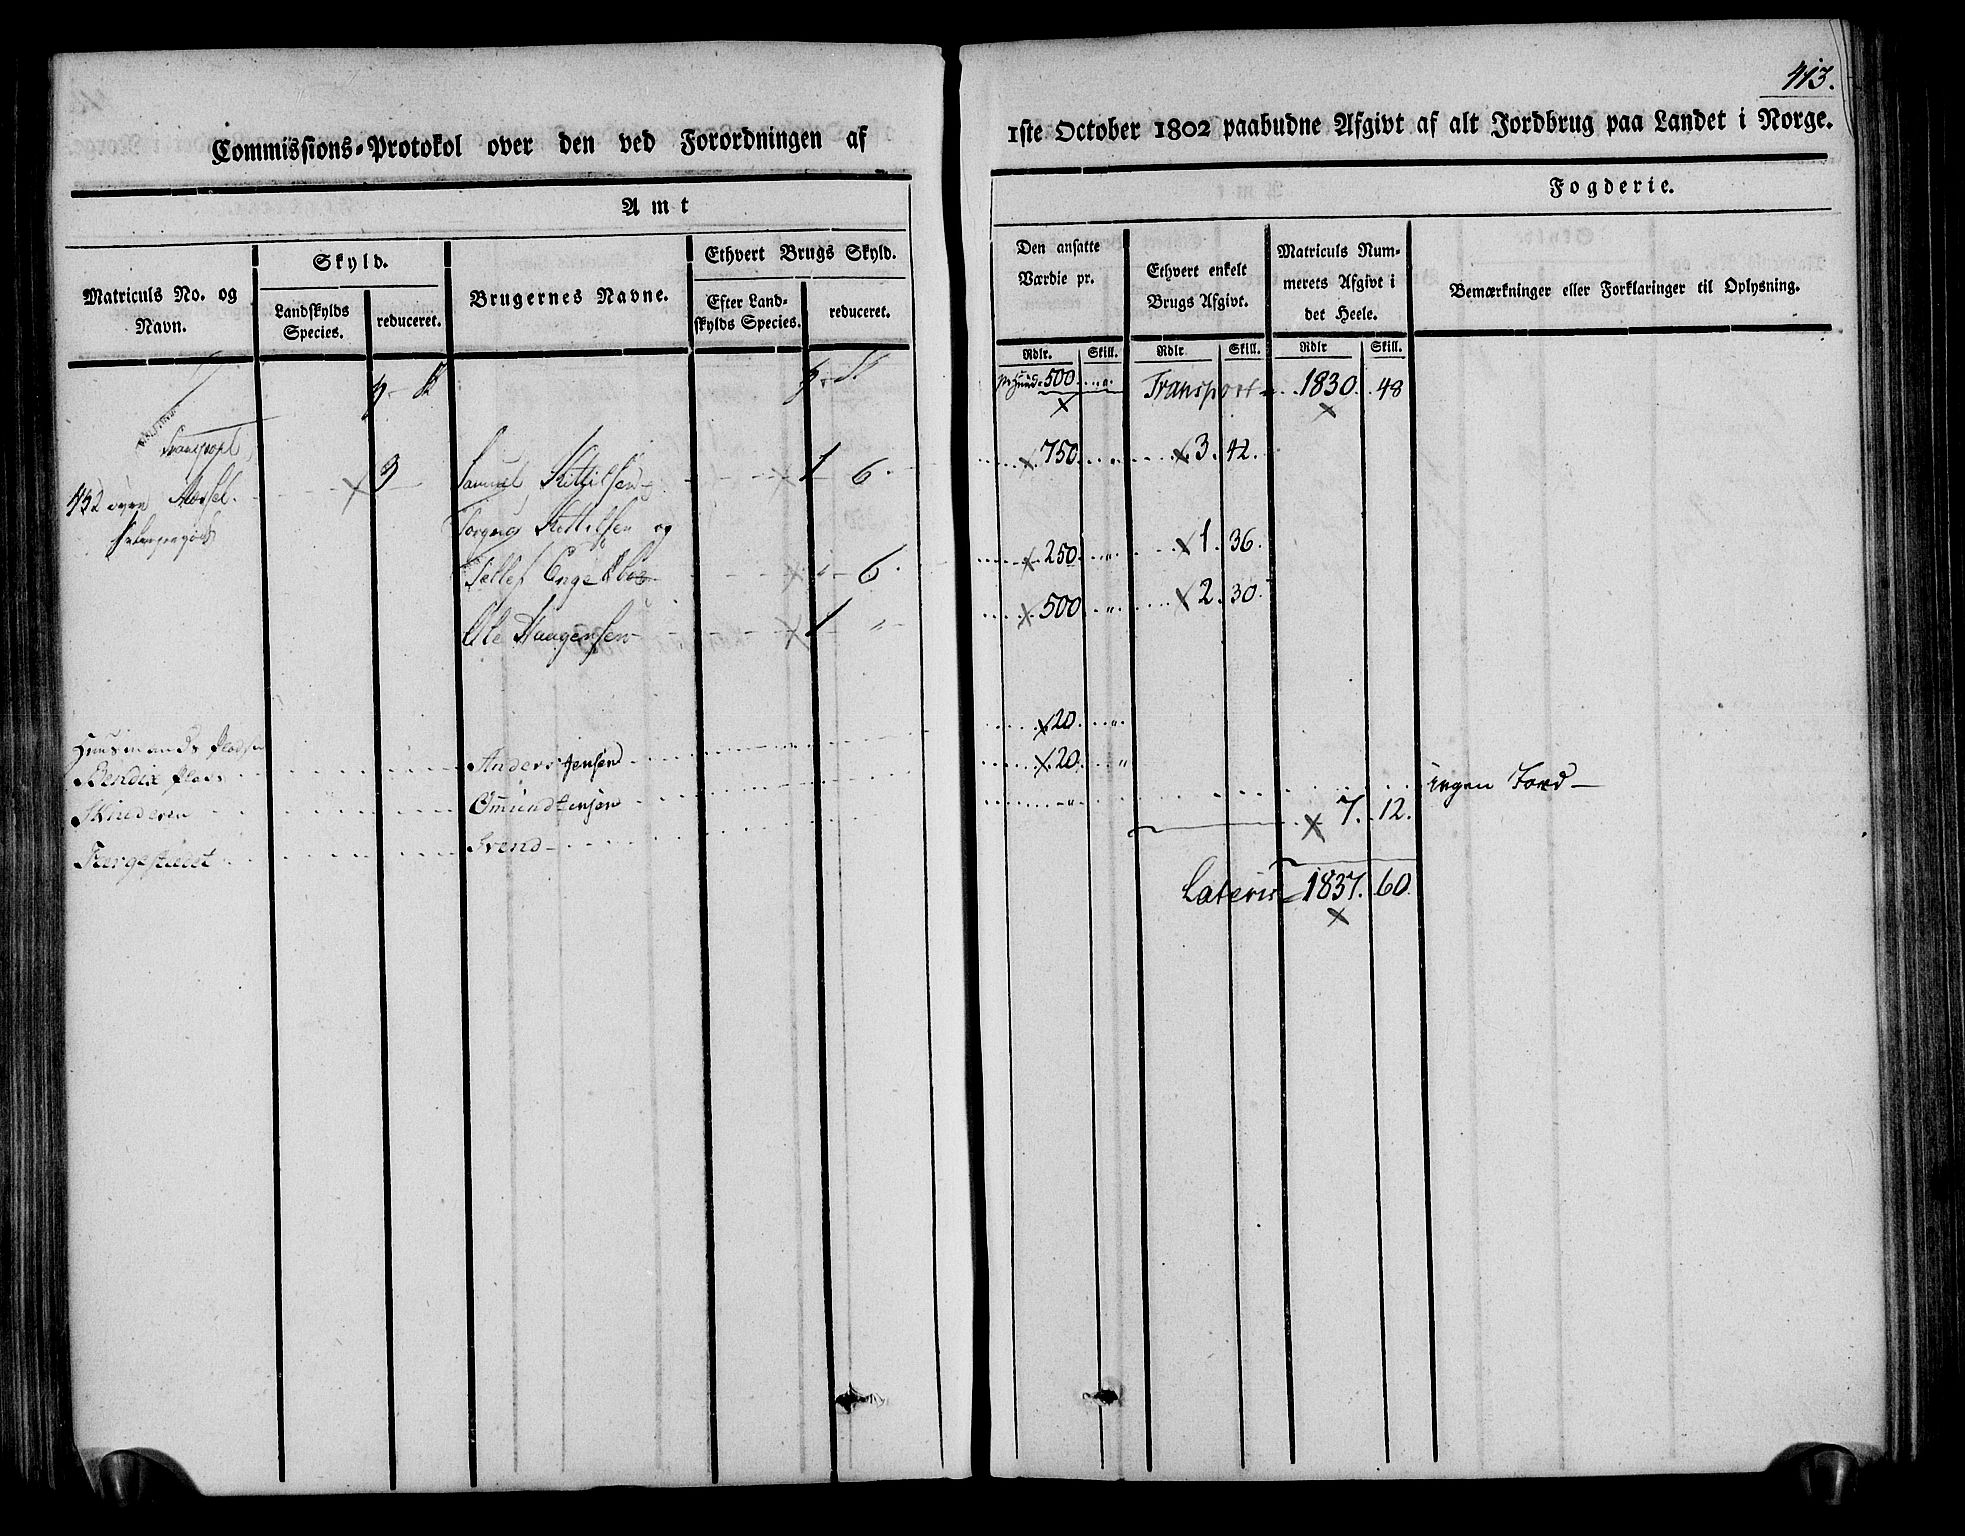 413.
Commissions-Protokol over den ved Forordningen af
1ste October 1802 paabudne Afgivt af alt Jordbrug paa Landet i Norge.
Amt
Fogderie.
Matriculs No. og Navn.
Skyld.
Landskylds Species.
reduceret.
Brugernes Navne.
Ethvert Brugs Skyld.
Efter Landskylds Species.
reduceret.
Den ansatte Værdie pr.
Ethvert enkelt Brugs Afgivt.
Matriculs Nummerets Afgivt i det Heele.
Bemærkninger eller Forklaringer til Oplysning.
Rdlr. Skill. Rdlr Skill. Rdlr Skill.
500 Transport 1830. 48
Transport
432 3 Samuel Kittilsen 1 6 750 3. 42.
Torgius Kittilsen og
Tellef Engelbos 6. 250 1. 36.
Ole Haagensen 1 " 500 2. 30.
Huusmands Pladse
Bendix Plads Anders Jensen 20
Skinderen Omund Jensen 20
Færgestædet Svend ingen Jord
7. 12.
Lateris 1837. 60.